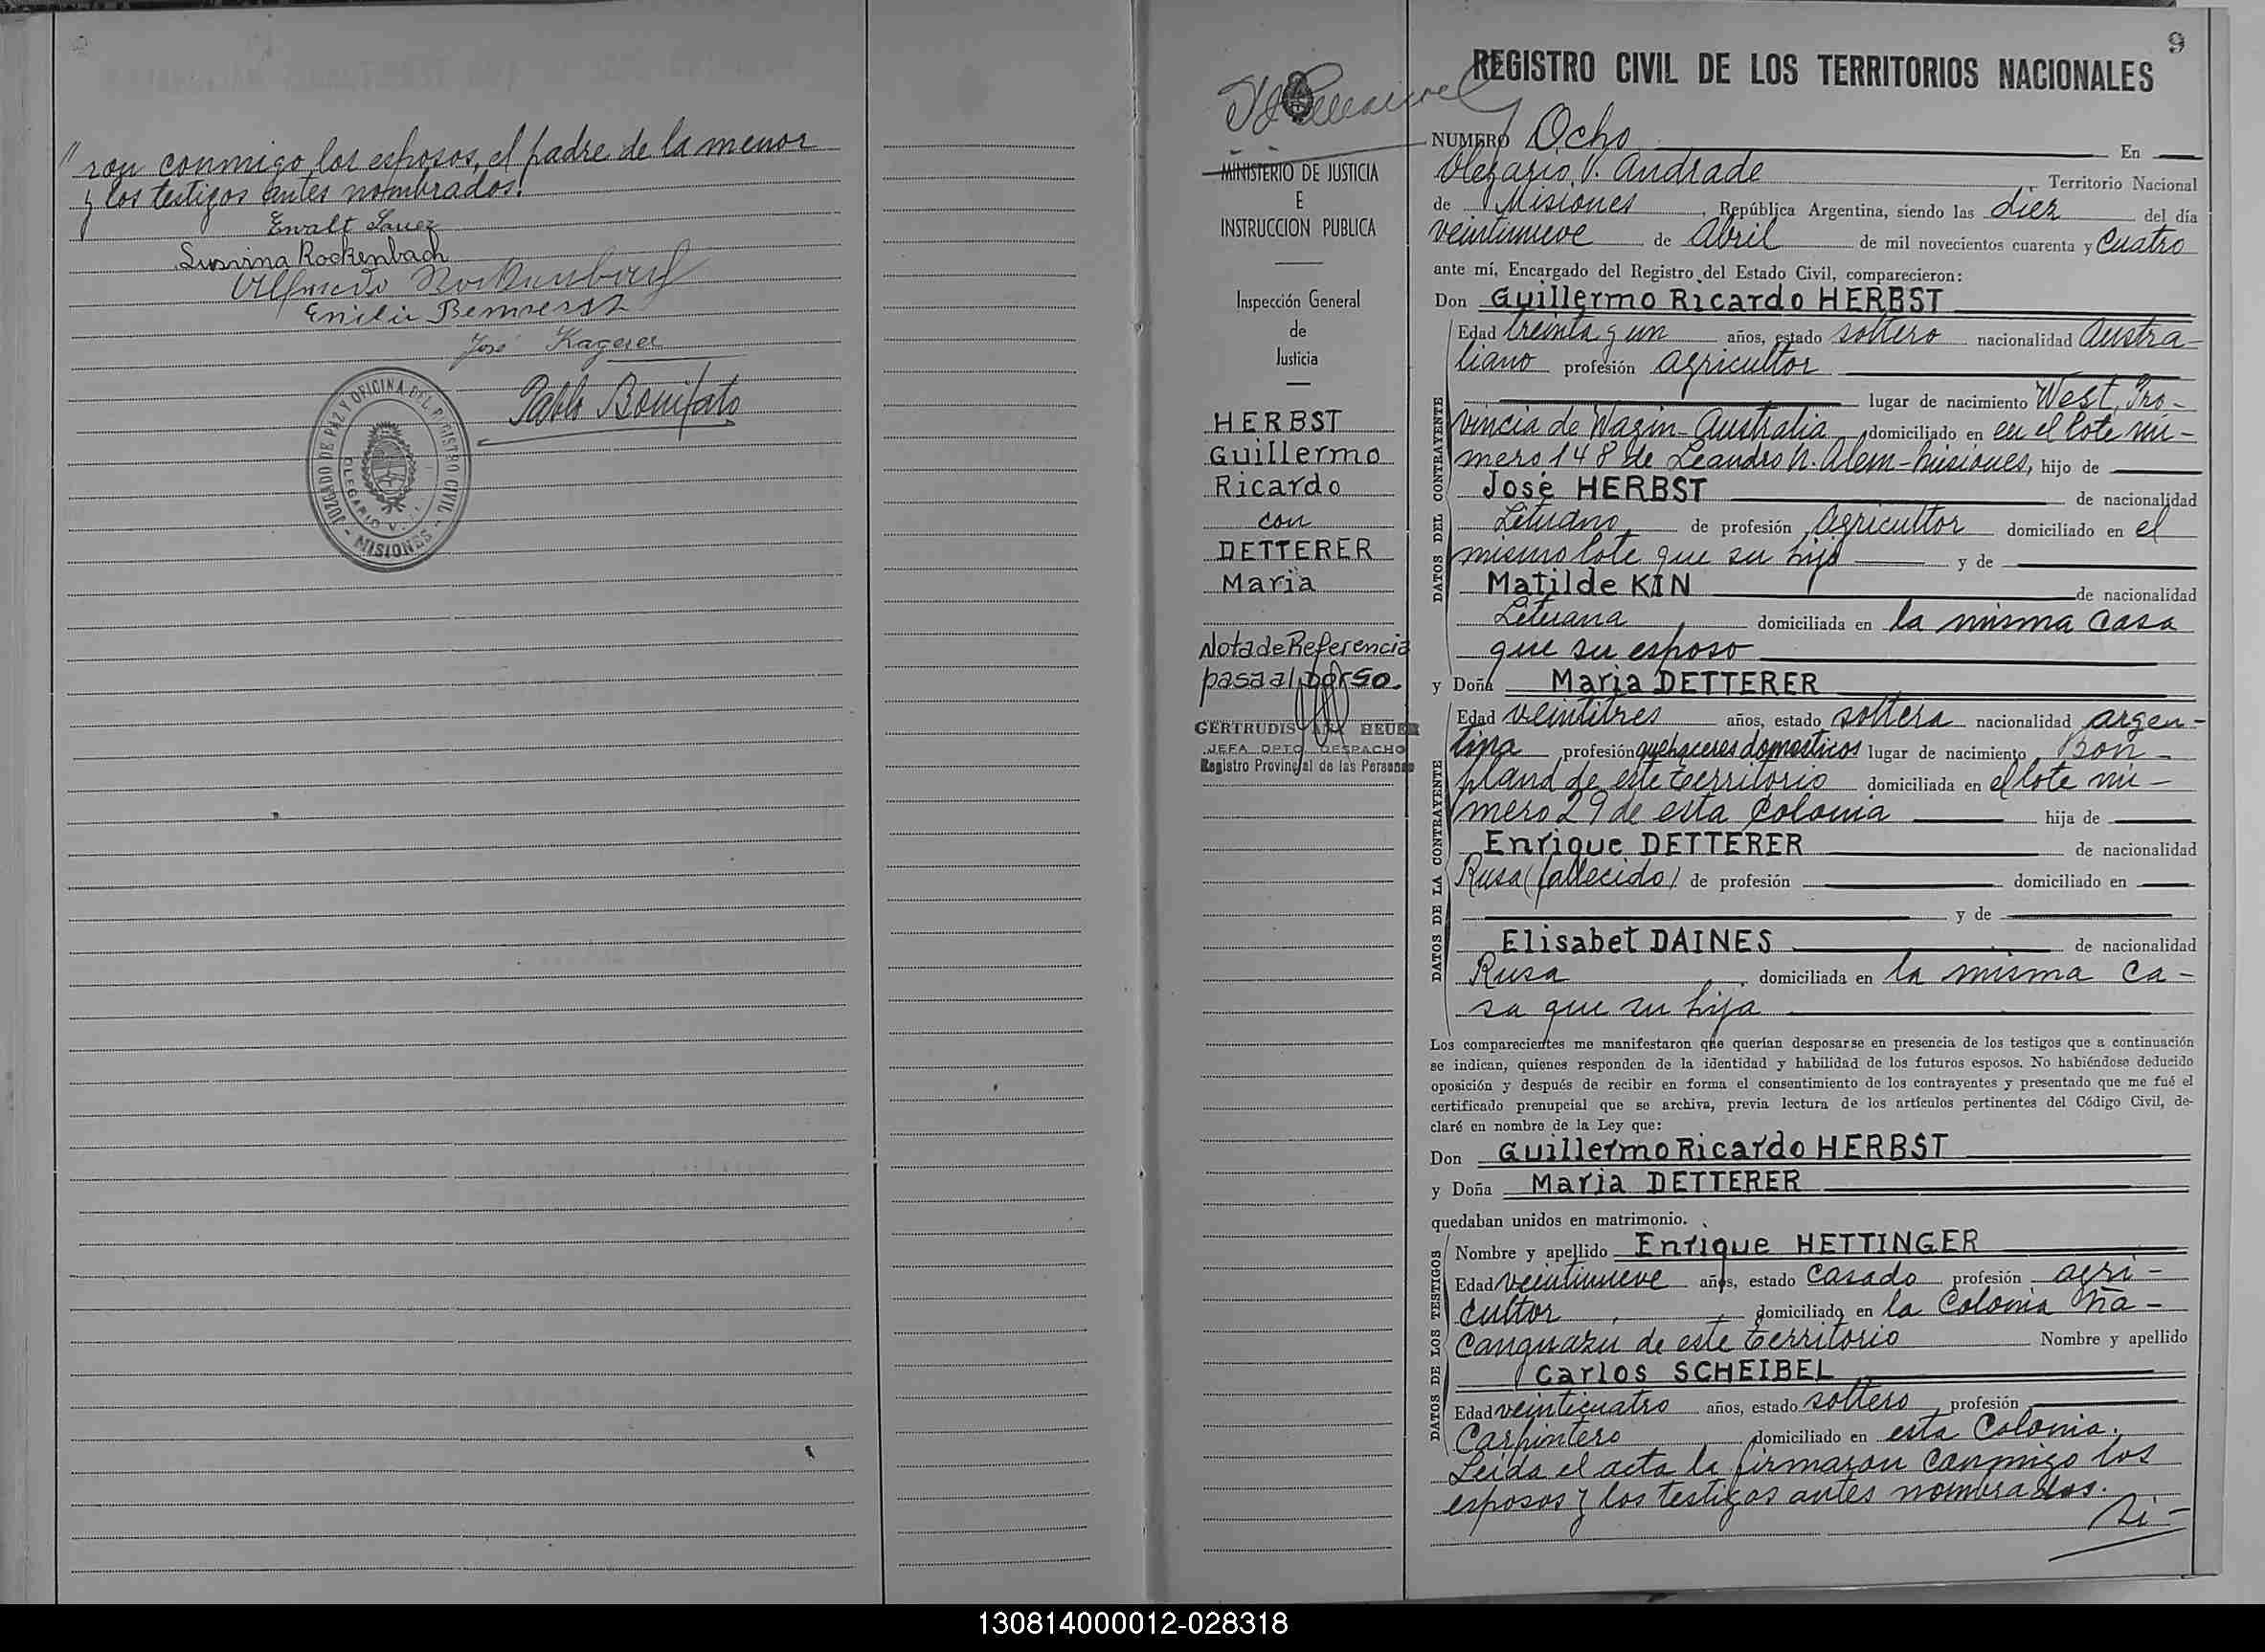 " ron conmigo los esposos, el padre de la menor
y los testigos antes nombrados.
Ewalt Sauer
Susina Rockenbach
Alfredo Rockenbach
José Kagerer
Pablo Bonifato
JUZGADO DE PAZ Y OFICINA DEL REGISTRO CIVIL
OLEGARIO V.
- MISIONES -
MINISTERIO DE JUSTICIA
E
INSTRUCCION PUBLICA
Inspección General
de
Justicia
HERBST
Guillermo
Ricardo
con
DETTERER
Maria
Nota de Referencia
pasa al dorso.
GERTRUDIS ANA HEUER
JEFA DPTO DESPACHO
Registro Provincial de las Personas
9
REGISTRO CIVIL DE LOS TERRITORIOS NACIONALES
NUMERO Ocho En
Olegario V. Andrade Territorio Nacional
de Misiones, República Argentina, siendo las diez del día
veintinueve de Abril de mil novecientos cuarenta y Cuatro
ante mí, Encargado del Registro del Estado Civil, comparecieron:
Don Guillermo Ricardo HERBST
DATOS DEL CONTRAYENTE
Edad treinta y un años, estado soltero nacionalidad Austra-
liano profesión agricultor
lugar de nacimiento West, Pro-
vincia de Wagin-Australia domiciliado en en el lote nú-
mero 148 de Leandro N. Alem-Misiones, hijo de
José HERBST de nacionalidad
Lituano de profesión agricultor domiciliado en el
mismo lote que su hijo y de
Matilde KIN de nacionalidad
Lituana domiciliada en la misma casa
que su esposo
y Doña Maria DETTERER
DATOS DE LA CONTRAYENTE
Edad veintitres años, estado soltera nacionalidad argen-
tina profesión quehaceres domesticos lugar de nacimiento Bon-
pland de este territorio domiciliada en el lote nú-
mero 29 de esta Colonia hija de
Enrique DETTERER de nacionalidad
Rusa (fallecido) de profesión domiciliado en
y de
Elisabet DAINES de nacionalidad
Rusa domiciliada en la misma ca-
sa que su hija
Los comparecientes me manifestaron que querían desposarse en presencia de los testigos que a continuación
se indican, quienes responden de la identidad y habilidad de los futuros esposos. No habiéndose deducido
oposición y después de recibir en forma el consentimiento de los contrayentes y presentado que me fué el
certificado prenupcial que se archiva, previa lectura de los artículos pertinentes del Código Civil, de-
claré en nombre de la Ley que:
Don Guillermo Ricardo HERBST
y Doña Maria DETTERER
quedaban unidos en matrimonio.
DATOS DE LOS TESTIGOS
Nombre y apellido Enrique HETTINGER
Edad veintinueve años, estado Casado profesión agri-
cultor domiciliado en la Colonia Ña-
canguazu de este territorio Nombre y apellido
Carlos SCHEIBEL
Edad veinticuatro años, estado soltero profesión
Carpintero domiciliado en esta Colonia.
Leida el acta la firmaron conmigo los
esposos y los testigos antes nombrados.
Si-
130814000012-028318